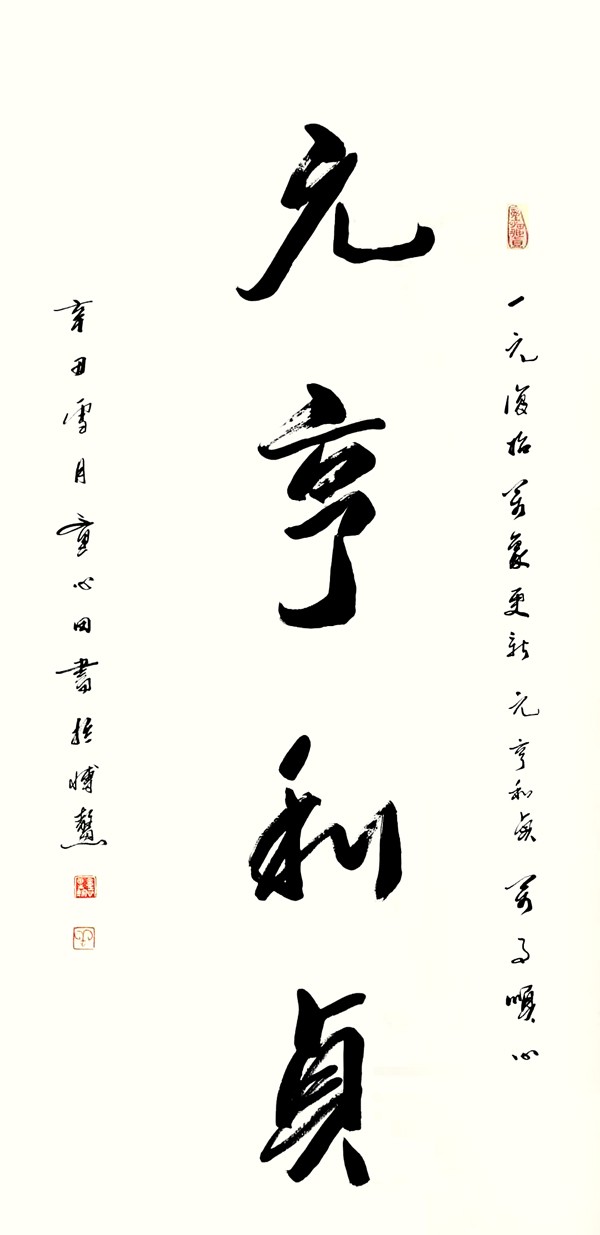 一元復始萬象更新元亨利貞萬事順心
元亨利貞
辛丑雪月童心田書於博鰲